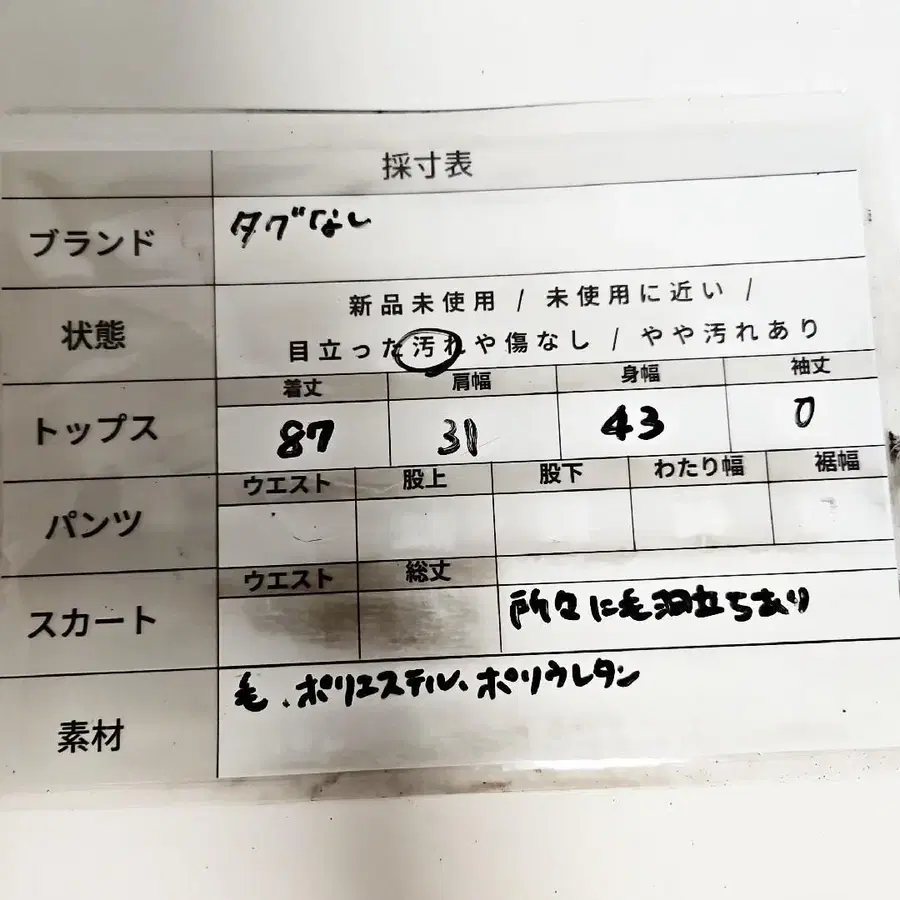 採寸表
ブランド タグなし
状態 新品未使用 / 未使用に近い /
目立った汚れや傷なし / やや汚れあり
着丈 肩幅 身幅 袖丈
トップス 87 31 43 0
ウエスト 股上 股下 わたり幅 裾幅
パンツ
ウエスト 総丈
スカート 所々に毛羽立ちあり
素材 毛、ポリエステル、ポリウレタン